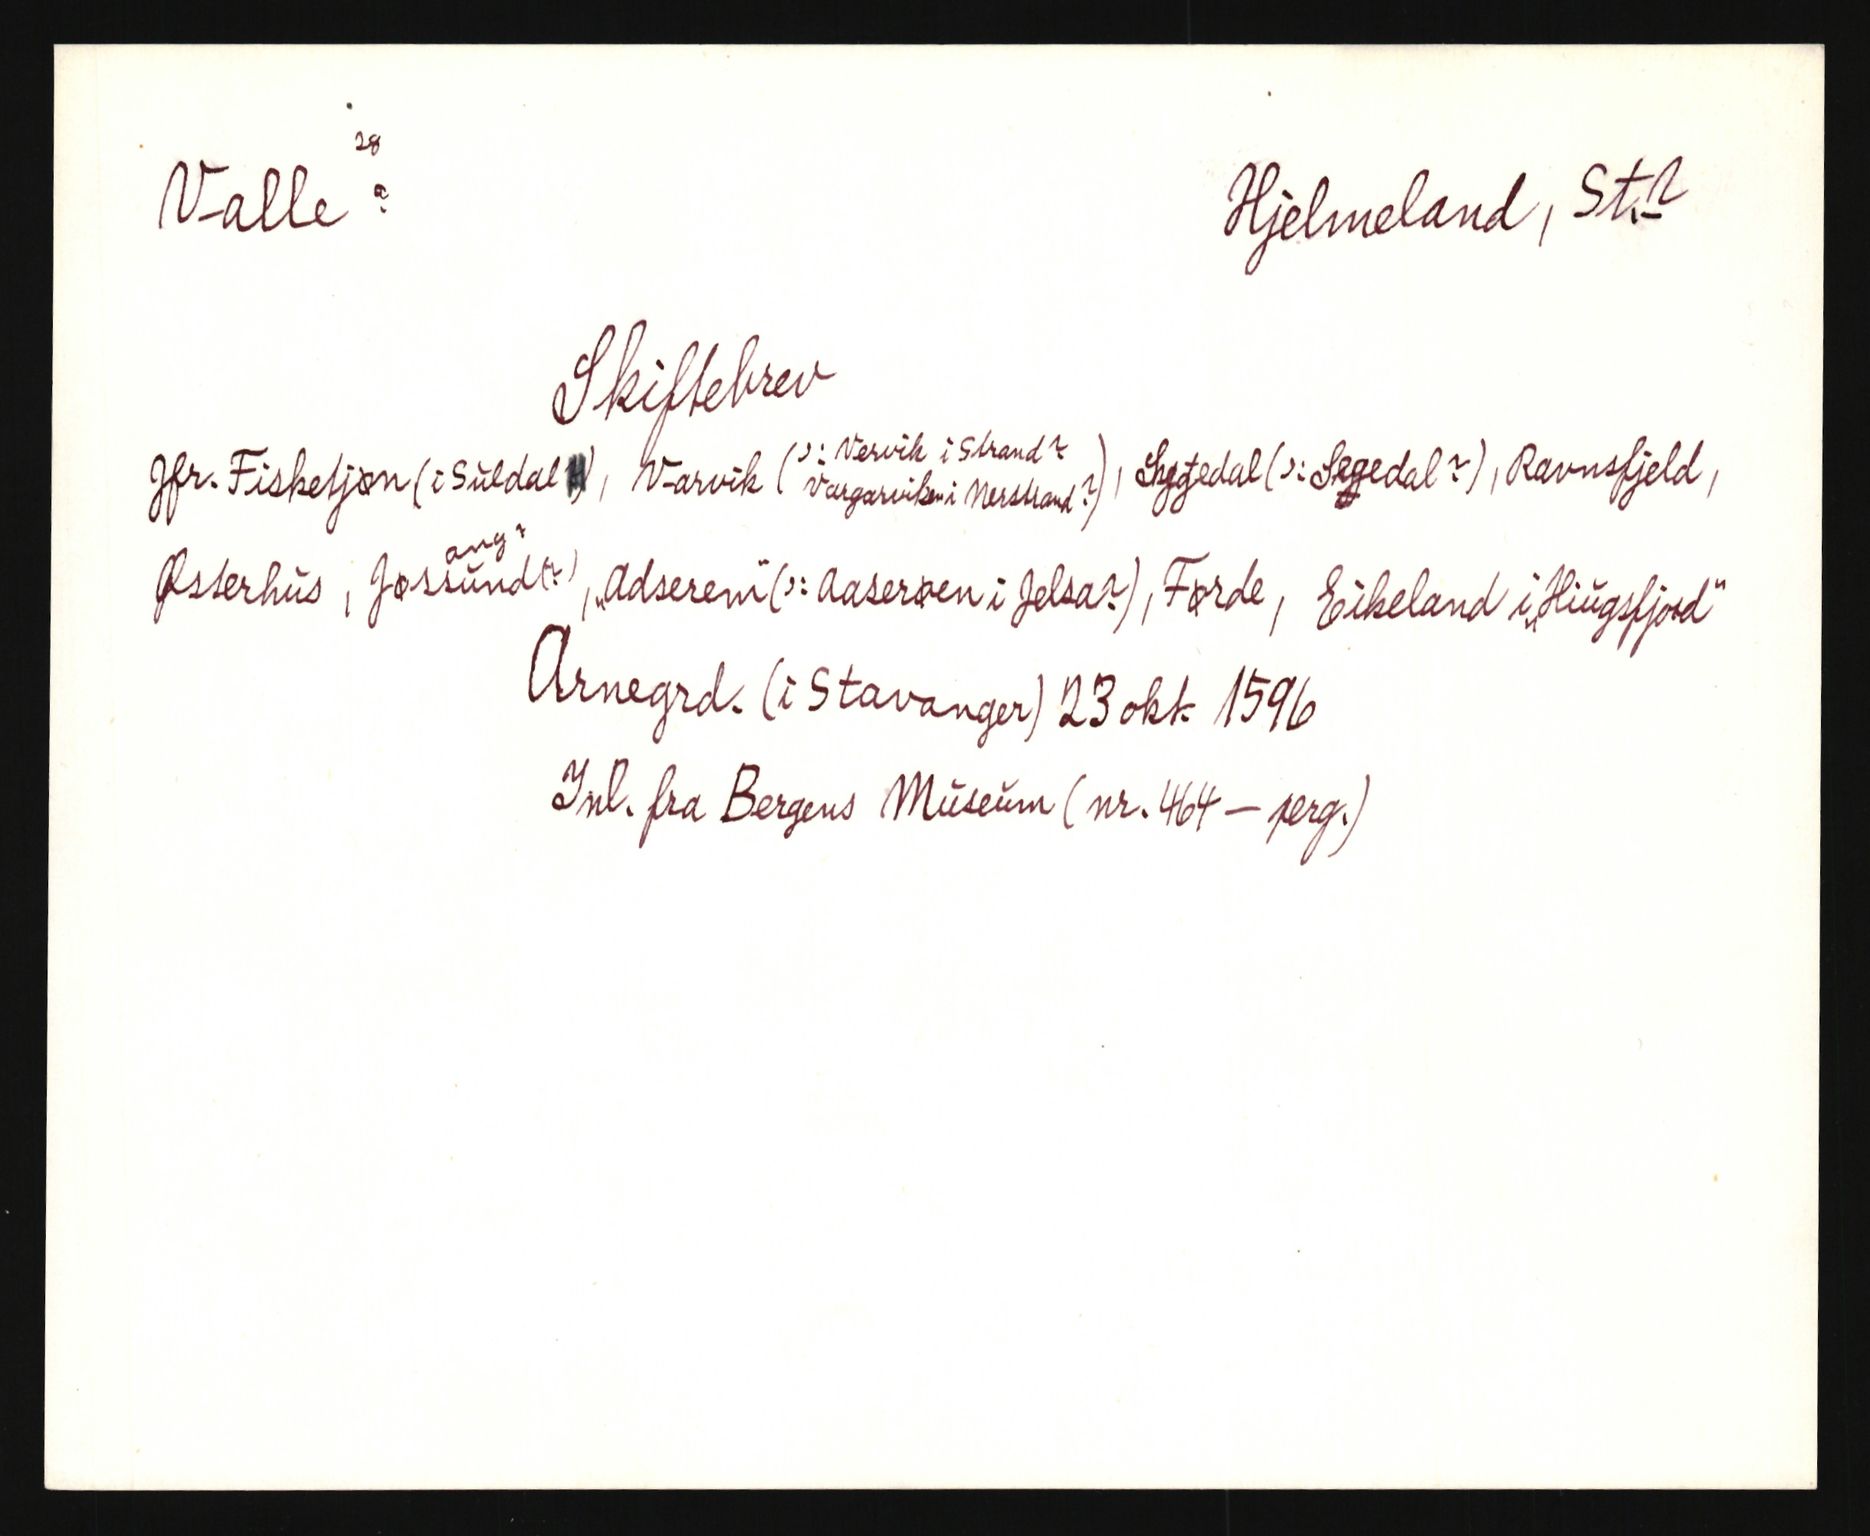 28
Valle a Hjelmeland, St.?
Skiftebrev
Jfr. Fisketjøn (i Suldal), Varvik (ɔ: Vervik i Strand?
Vargaviken i Nerstrand?), (ɔ: Segedal?), Ravnsfjeld,
ang?
Østerhus, Jøssund(?), „Adsereni" (ɔ: Aaserøen i Jelsa?), Førde, Eikeland i „Hiugsfjord"
Arnegrd. (i Stavanger) 23 okt. 1596
Inl. fra Bergens Museum (nr. 464 – perg.)